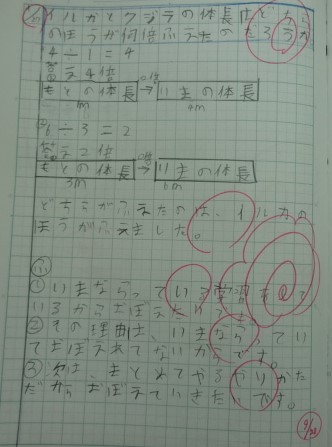 イルカとクジラの体長はどちら
のほうが何倍ふえたのだろうか
4÷1=4
答え4倍
もとの体長 → いまの体長
1m 4m
6÷3=2
答え2倍
もとの体長 → いまの体長
3m 6m
どちらがふえたのは、イルカの
ほうがふえました。
①いまならっている
いるからおぼえた
②その理由は、いまならってい
ておぼえてないからです。
③次は、まとめてやるやりかた
だからおぼえていきたいです。